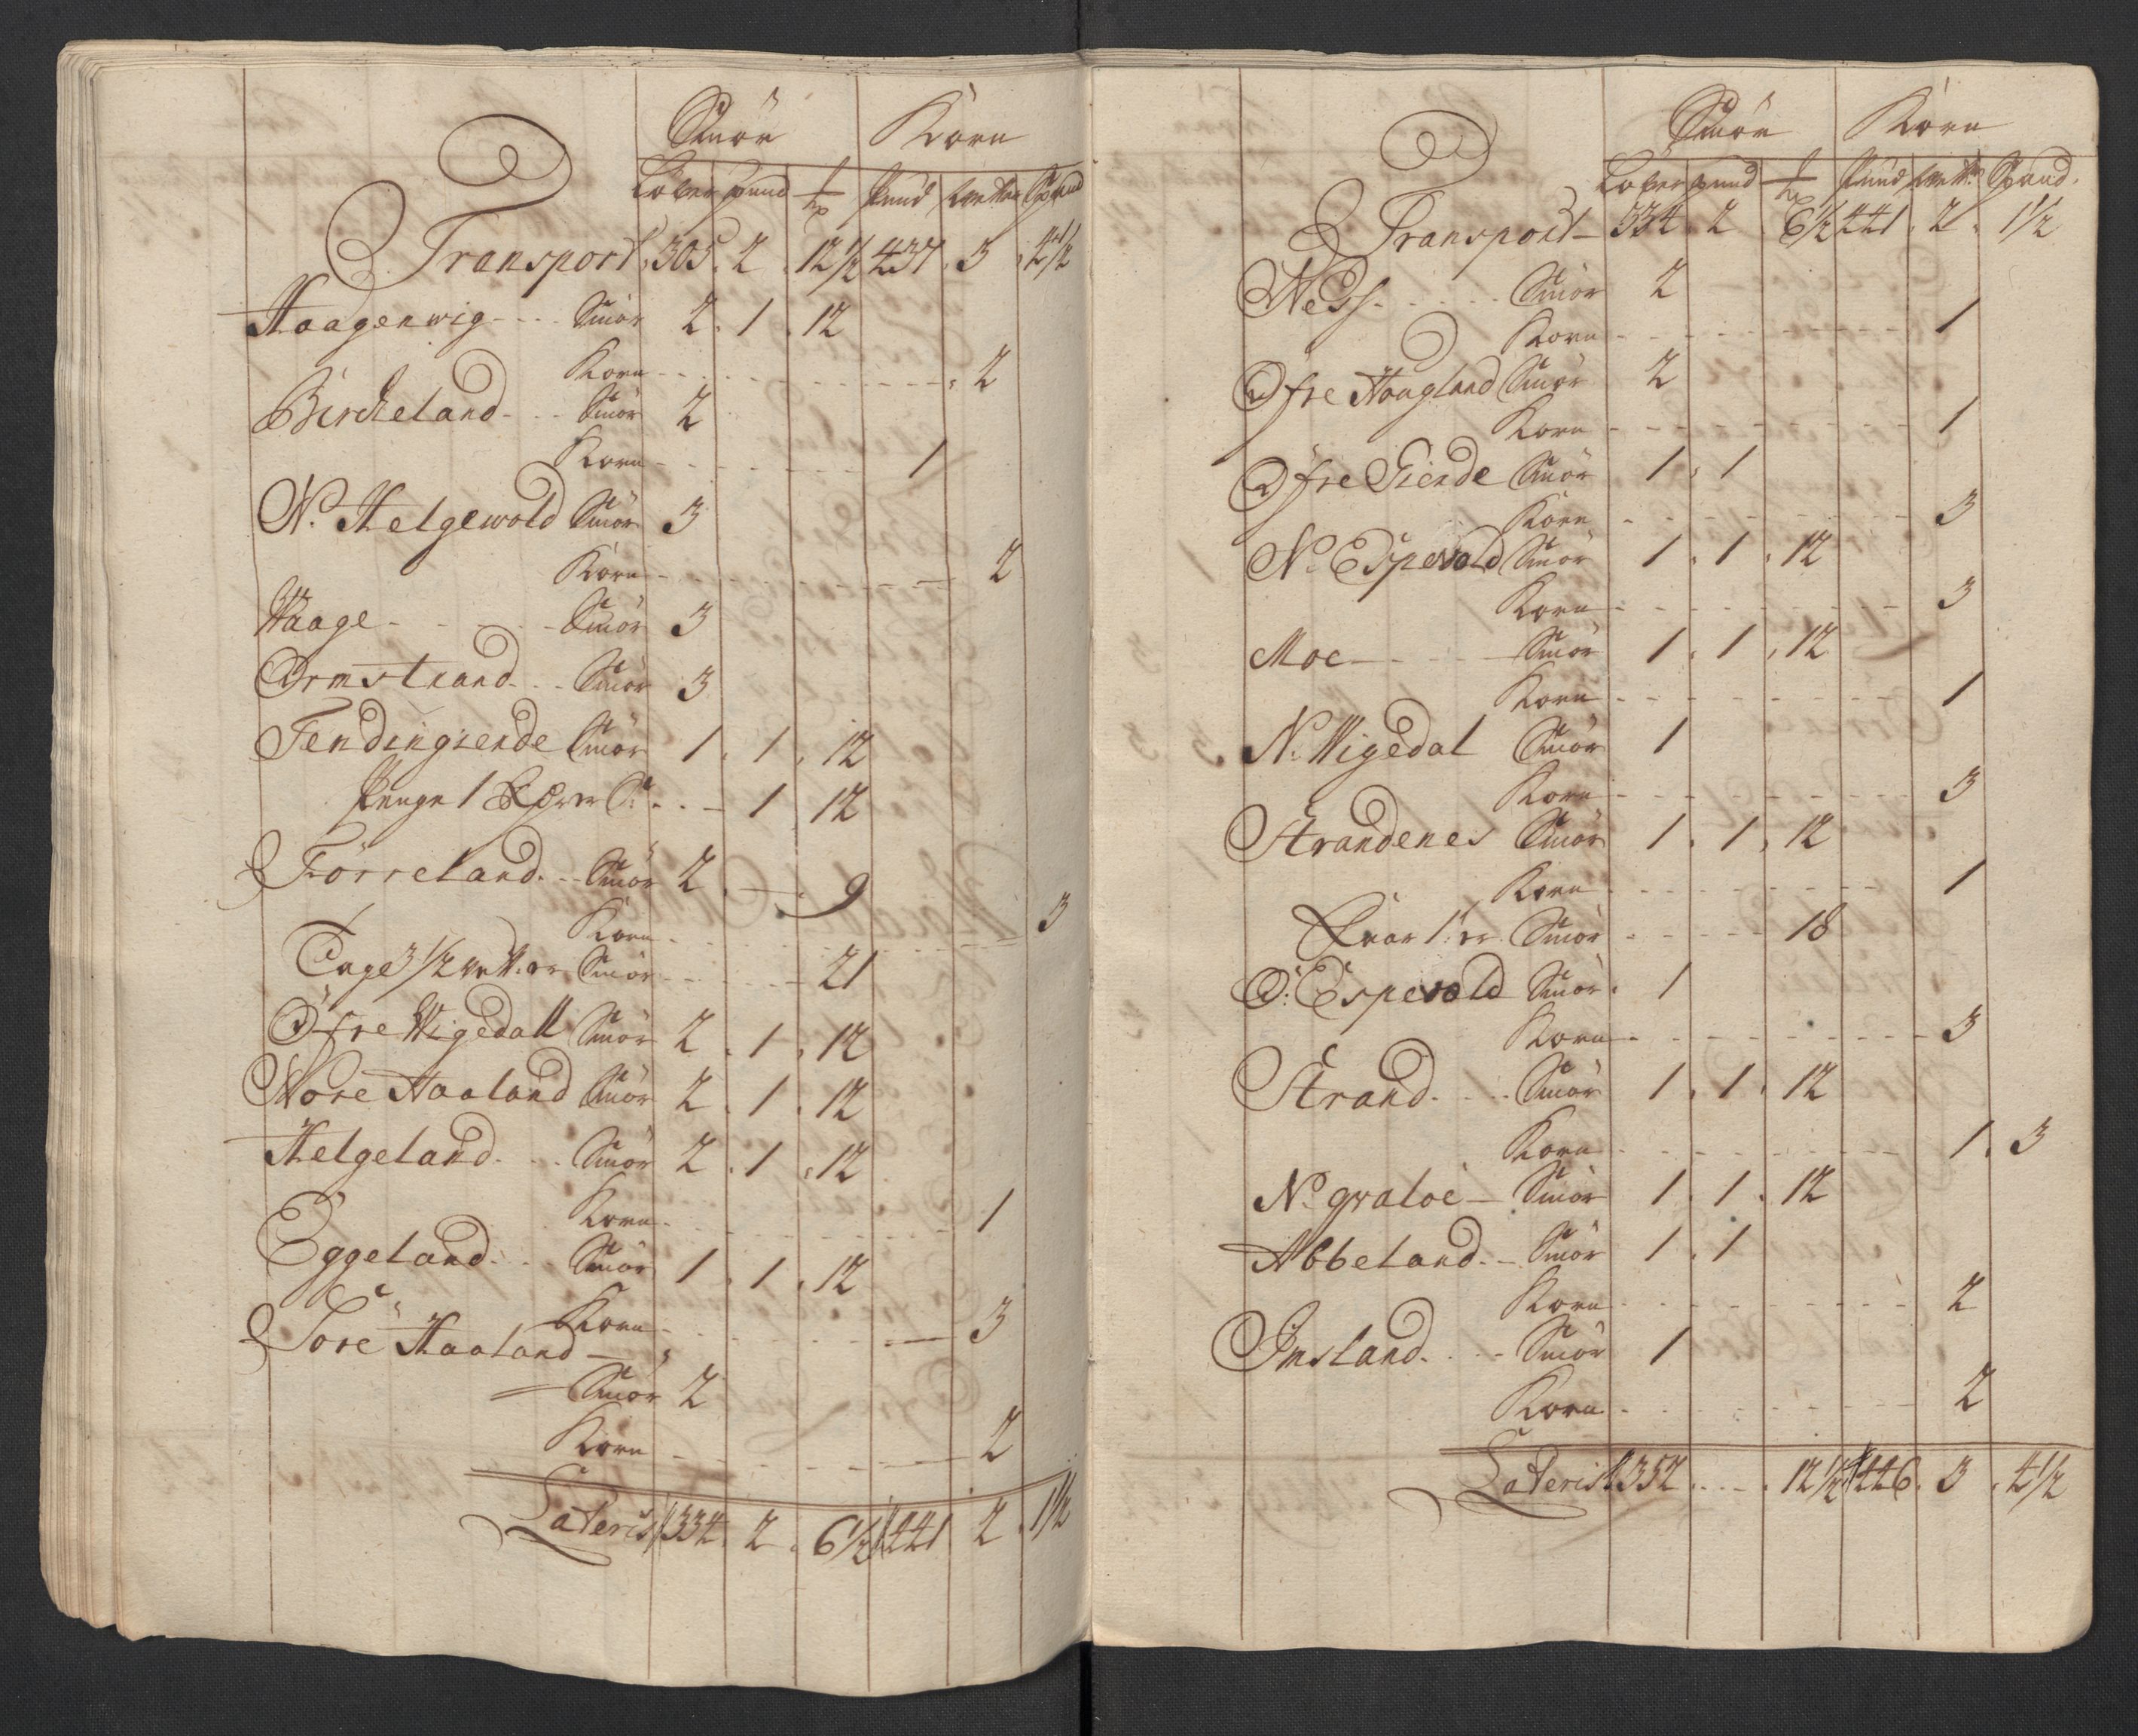 Smör Korn
Löber pund ƚƀ Pund wetter Spand
Transport 305. 2. 12½ 437. 3. 4½
Haagenwig - - - Smör 2. 1. 12
Korn - - - 2
Bircheland - - - Smör 2
Korn - - - 1
N. Helgewold Smör 3
Korn - - - 2
Waage - - - Smör 3
Ormstrand - - - Smör 3
Fendingiende Smör 1. 1. 12
Penge 1 - - - 1. 12
Förreland - - Smör 2. — 9
Korn - - - 3
Tage 3½ wett. er Smör - - - 21
Öfre Wigedall Smör 2. 1. 12
Nore Haaland Smör 2. 1. 12
Helgeland - - - Smör 2. 1. 12
Korn - - - 1
Eggeland - - Smör 1. 1. 12
Korn - - - 3
Söre Haaland —
Smör 2
Korn - - - 2
Lateris 334. 2. 6½ 441 2. 1½
Smör Korn
Löber pund ƚƀ Pund wett. Spand.
Transport - 334. 2. 6½ 441. 2. 1½
Ness - - - Smör 2
Korn - - - 1
Öfre Haagland Smör 2
Korn - - - 1
Öfre Giende Smör 1. 1
Korn - - - 3
N. Espevold Smör 1. 1. 12
Korn - - - 3
Moe - - - Smör 1. 1. 12
Korn - - - 1
N. Wigedal Smör 1
Korn - - - 3
Strandenes Smör 1. 1. 12
Korn - - - 1
1. er Smör - - - 18
Ö: Espevold Smör. 1
Korn - - - 3
Strand - - - Smör 1. 1. 12
Korn - - - 1. 3
N. qvaloe — Smör 1. 1. 12
Abbeland - - Smör 1. 1
Korn - - - 2
Imsland - - - Smör 1
Korn - - - 2
Lateris 352. - - - 12½ 446. 3. 4½